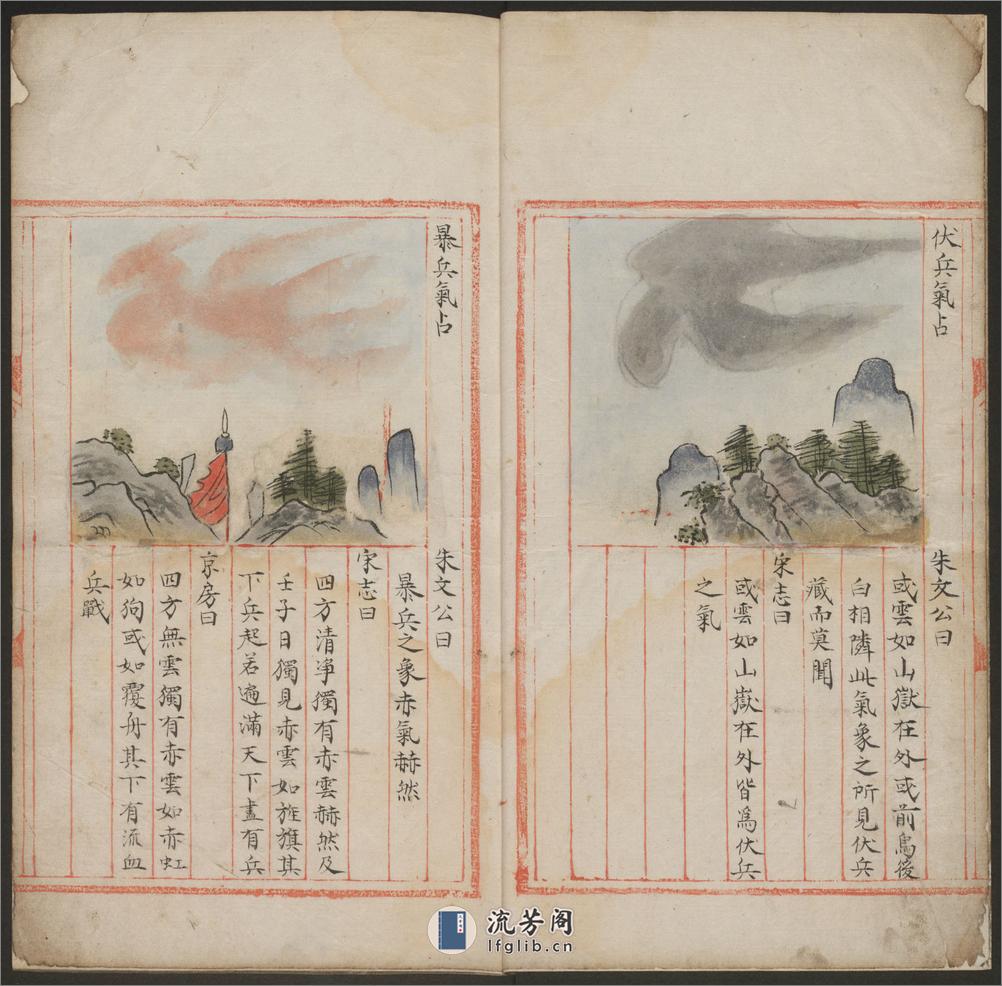 伏兵氣占
朱文公曰
或雲如山嶽在外或前烏後
白相隣此氣象之所見伏兵
藏而莫聞
宋志曰
或雲如山嶽在外皆為伏兵
之氣
暴兵氣占
朱文公曰
暴兵之象赤氣赫然
宋志曰
四方清净獨有赤雲赫然及
壬子日獨見赤雲如旌旗其
下兵起若遍滿天下盡有兵
京房曰
四方無雲獨有赤雲如赤虹
如狗或如覆舟其下有流血
兵戰
流芳阁
lfglib.cn